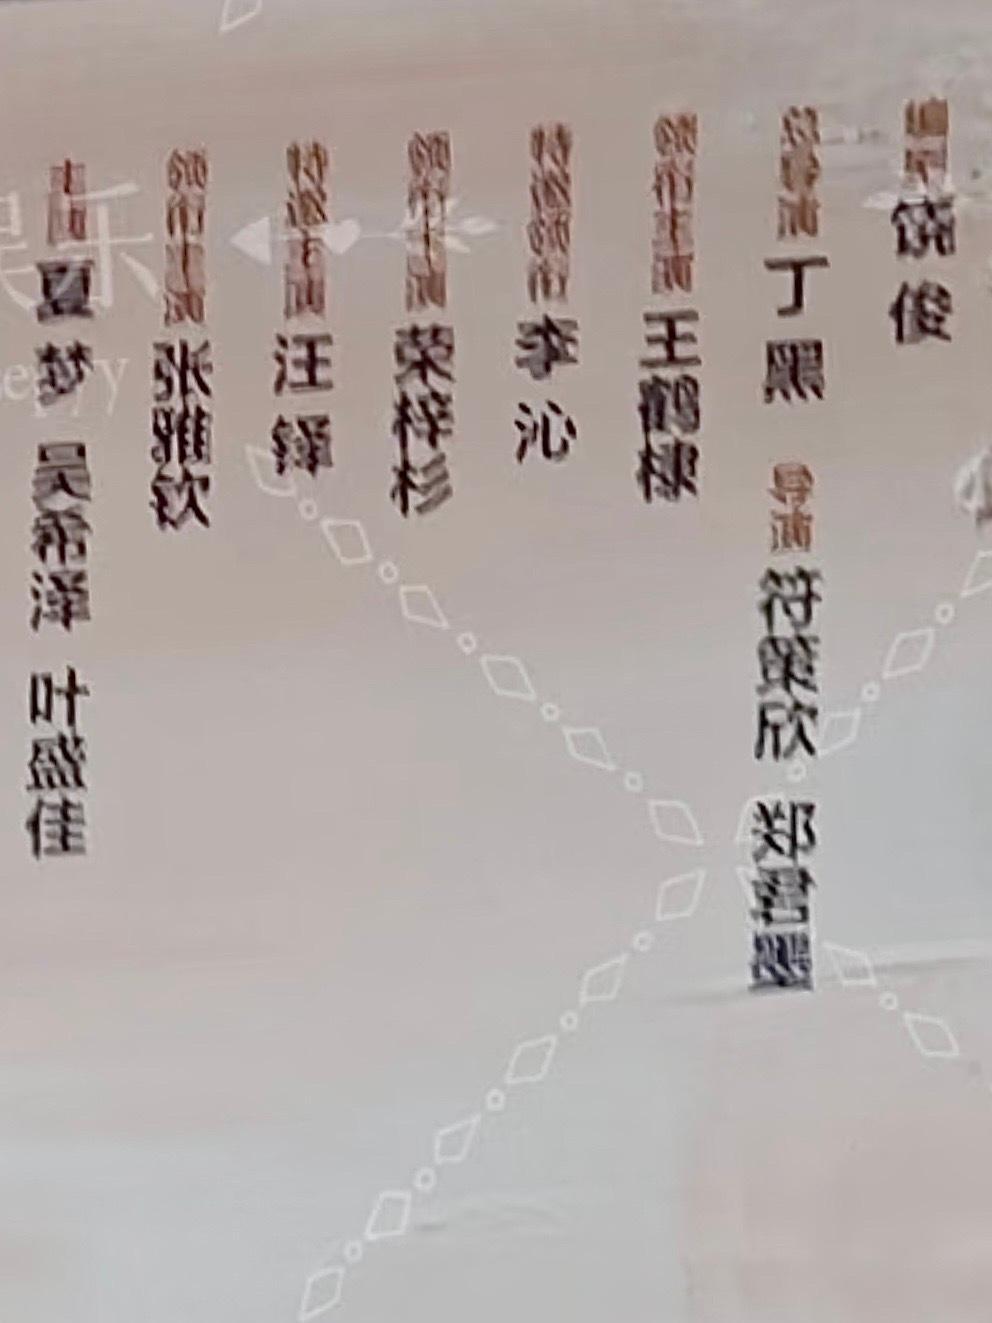 编剧 饶俊
总导演 丁黑 导演
领衔主演 王鹤棣
特邀领衔 李沁
领衔主演 荣梓杉
特邀主演 汪铎
领衔主演 张雅钦
主演 夏梦 吴希泽 叶盛佳
乐